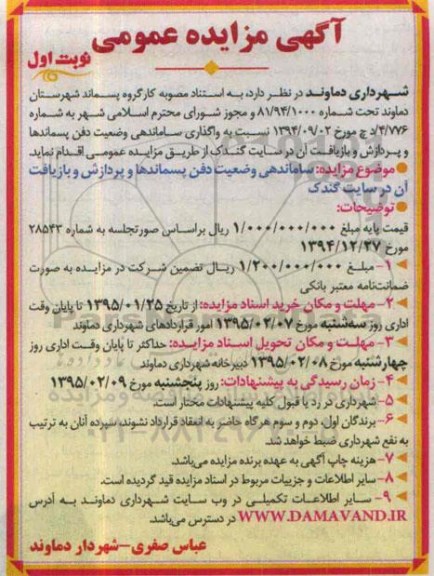 آگهی مزایده عمومی
نوبت اول
شهرداری دماوند در نظر دارد، به استناد مصوبه کارگروه پسماند شهرستان
دماوند تحت شماره ۸۱/۹۴/۱۰۰۰ و مجوز شورای محترم اسلامی شهر به شماره
۴/۷۷۶/د چ مورخ ۱۳۹۴/۰۹/۰۲ نسبت به واگذاری ساماندهی وضعیت دفن پسماندها
و پردازش و بازیافت آن در سایت گندک از طریق مزایده عمومی اقدام نماید.
موضوع مزایده: ساماندهی وضعیت دفن پسماندها و پردازش و بازیافت
آن در سایت گندک
توضیحات:
قیمت پایه مبلغ ۱/۰۰۰/۰۰۰/۰۰۰ ریال براساس صورتجلسه به شماره ۲۸۵۴۳
مورخ ۱۳۹۴/۱۲/۲۷
۱- مبلغ ۱/۲۰۰/۰۰۰/۰۰۰ ریال تضمین شرکت در مزایده به صورت
ضمانت‌نامه معتبر بانکی
۲- مهلت و مکان خرید اسناد مزایده: از تاریخ ۱۳۹۵/۰۱/۲۵ تا پایان وقت
اداری روز سه‌شنبه مورخ ۱۳۹۵/۰۲/۰۷ امور قراردادهای شهرداری دماوند
۳- مهلت و مکان تحویل اسناد مزایده: حداکثر تا پایان وقت اداری روز
چهارشنبه مورخ ۱۳۹۵/۰۲/۰۸ دبیرخانه شهرداری دماوند
۴- زمان رسیدگی به پیشنهادات: روز پنجشنبه مورخ ۱۳۹۵/۰۲/۰۹
۵- شهرداری در رد یا قبول کلیه پیشنهادات مختار است.
۶- برندگان اول، دوم و سوم هرگاه حاضر به انعقاد قرارداد نشوند، سپرده آنان به ترتیب
به نفع شهرداری ضبط خواهد شد.
۷- هزینه چاپ آگهی به عهده برنده مزایده می‌باشد.
۸- سایر اطلاعات و جزییات مربوط در اسناد مزایده قید گردیده است.
۹- سایر اطلاعات تکمیلی در وب سایت شهرداری دماوند به آدرس
WWW.DAMAVAND.IR در دسترس می‌باشد.
عباس صفری-شهردار دماوند